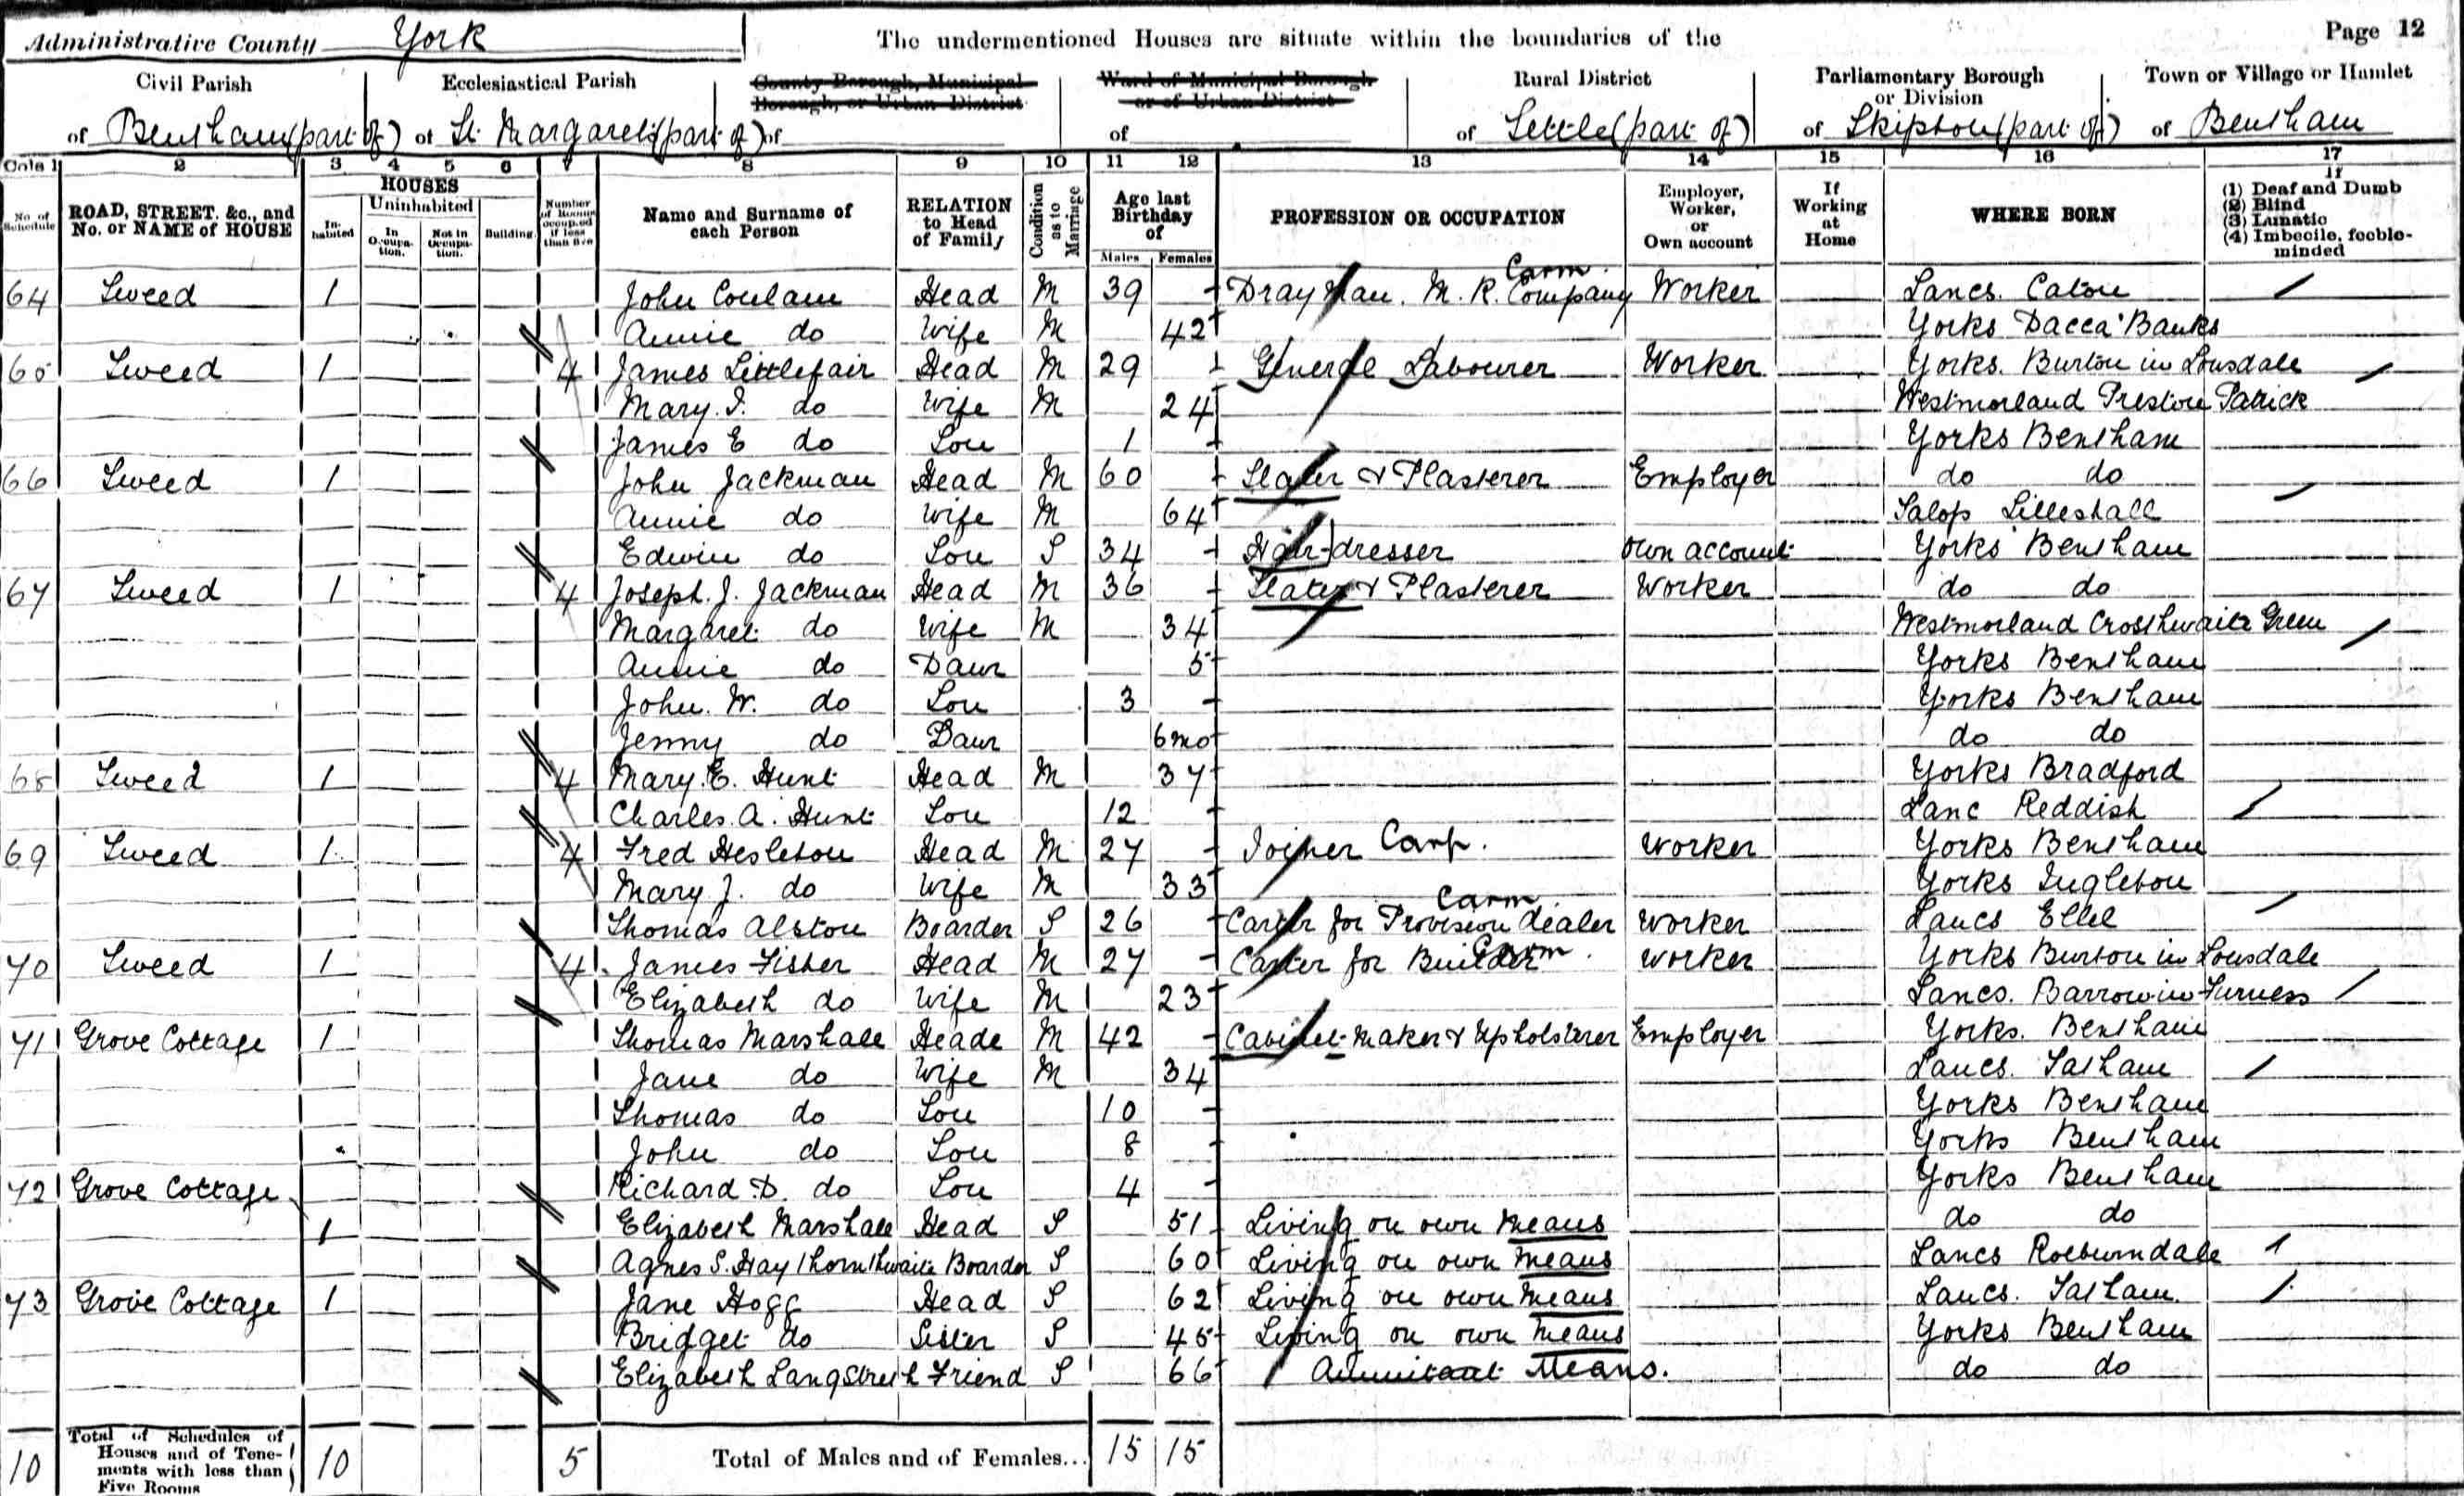 Administrative County York The undermentioned Houses are situate within the boundaries of the Page 12
Civil Parish Ecclesiastical Parish County Borough, Municipal Borough, or Urban District Ward of Municipal Borough or of Urban District Rural District Parliamentary Borough or Division Town or Village or Hamlet
of Bentham (part of) of St. Margarets (part of) of of of Settle (part of) of Skipton (part of) of Bentham
Cols 1 2 3 4 5 6 7 8 9 10 11 12 13 14 15 16 17
No. of Schedule ROAD, STREET, &c., and No. or NAME of HOUSE HOUSES In-habited Uninhabited In Occupa-tion. Not in Occupa-tion. Building Number of Rooms occupied if less than five Name and Surname of each Person RELATION to Head of Family Condition as to Marriage Age last Birthday of Males Females PROFESSION OR OCCUPATION Employer, Worker, or Own account If Working at Home WHERE BORN If (1) Deaf and Dumb (2) Blind (3) Lunatic (4) Imbecile, feeble-minded
64 Tweed 1 John Coulam Head M 39 Drayman. M. R. Company Carm. Worker Lancs. Caton
Annie do Wife M 42 Yorks Dacca Banks
65 Tweed 1 4 James Littlefair Head M 29 General Labourer Worker Yorks. Burton in Lonsdale
Mary. I. do Wife M 24 Westmorland Preston Patrick
James E do Son 1 Yorks Bentham
66 Tweed 1 John Jackman Head M 60 Slater & Plasterer Employer do do
Annie do Wife M 64 Salop Lilleshall
Edwin do Son S 34 Hair-dresser Own account Yorks Bentham
67 Tweed 1 4 Joseph. J. Jackman Head M 36 Slater & Plasterer Worker do do
Margaret do Wife M 34 Westmorland Crosthwaite Green
Annie do Daur 5 Yorks Bentham
John. W. do Son 3 Yorks Bentham
Jenny do Daur 6mo do do
68 Tweed 1 4 Mary. E. Hunt Head M 37 Yorks Bradford
Charles. A. Hunt Son 12 Lanc Reddish
69 Tweed 1 4 Fred Hesleton Head M 27 Joiner Carp. Worker Yorks Bentham
Mary. J. do Wife M 33 Yorks Ingleton
Thomas Alston Boarder S 26 Carter for Provision dealer Carm Worker Lancs Ellel
70 Tweed 1 4 James Fisher Head M 27 Carter for Builder Carm. Worker Yorks Burton in Lonsdale
Elizabeth do Wife M 23 Lancs. Barrow in Furness
71 Grove Cottage 1 Thomas Marshall Heade M 42 Cabinet-Maker & Upholsterer Employer Yorks. Bentham
Jane do Wife M 34 Lancs. Tatham
Thomas do Son 10 Yorks Bentham
John do Son 8 Yorks Bentham
72 Grove Cottage Richard D. do Son 4 Yorks Bentham
1 Elizabeth Marshall Head S 51 Living on own means do do
Agnes S. Haythornthwaite Boarder S 60 Living on own means Lancs Roeburndale
73 Grove Cottage 1 Jane Hogg Head S 62 Living on own means Lancs. Tatham.
Bridget do Sister S 45 Living on own means Yorks Bentham
Elizabeth Langstreth Friend S 66 Means. do do
10 Total of Schedules of Houses and of Tene-ments with less than Five Rooms 10 5 Total of Males and of Females... 15 15